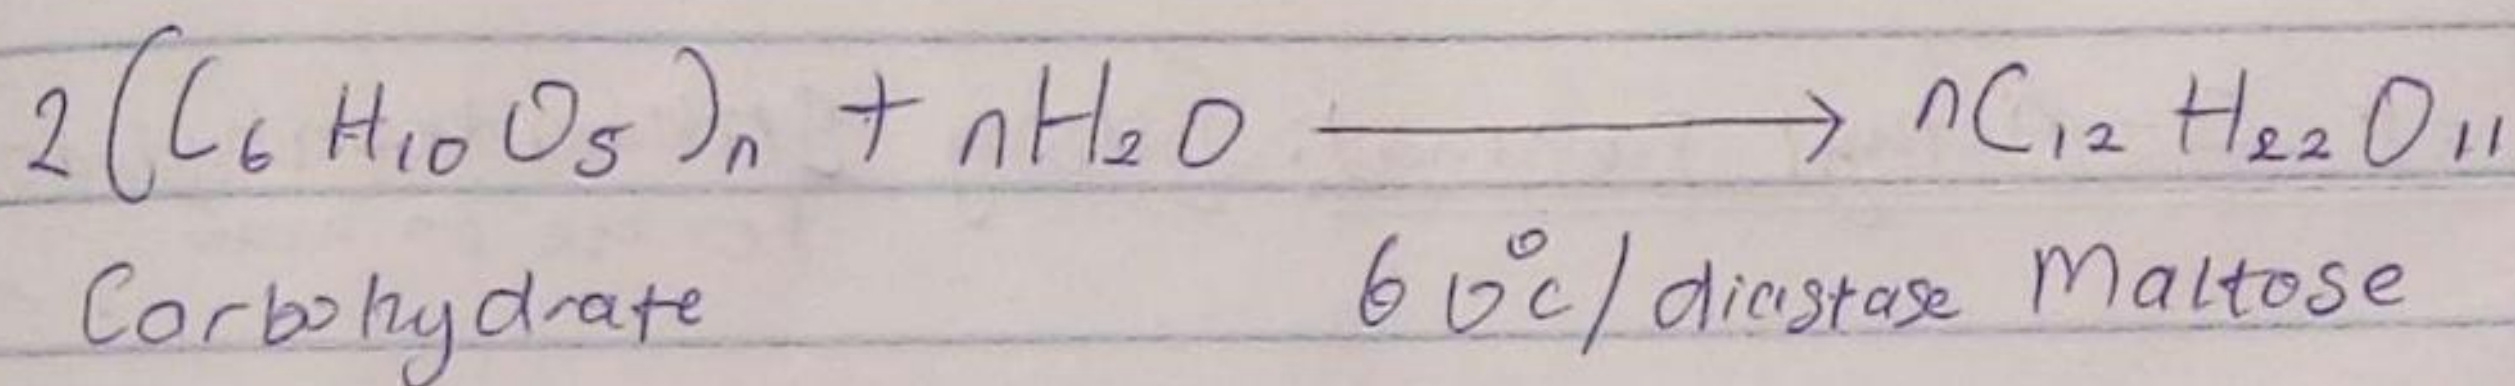 2(C₆H₁₀O₅)ₙ + nH₂O ⟶ nC₁₂H₂₂O₁₁
Carbohydrate 60°c/diastase Maltose